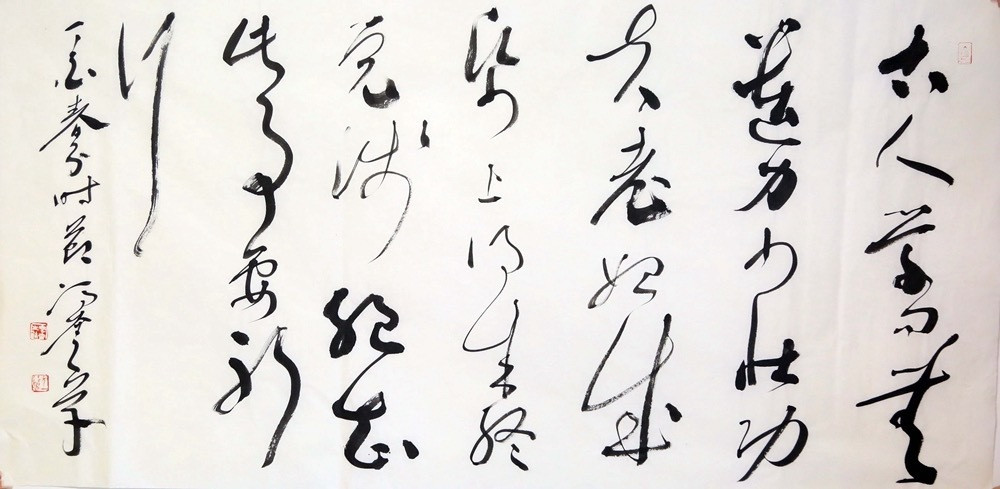 古人学问無
遺力少壮功
夫老始成
纸上得来终
觉浅绝知
此事要躬
行
春分时节